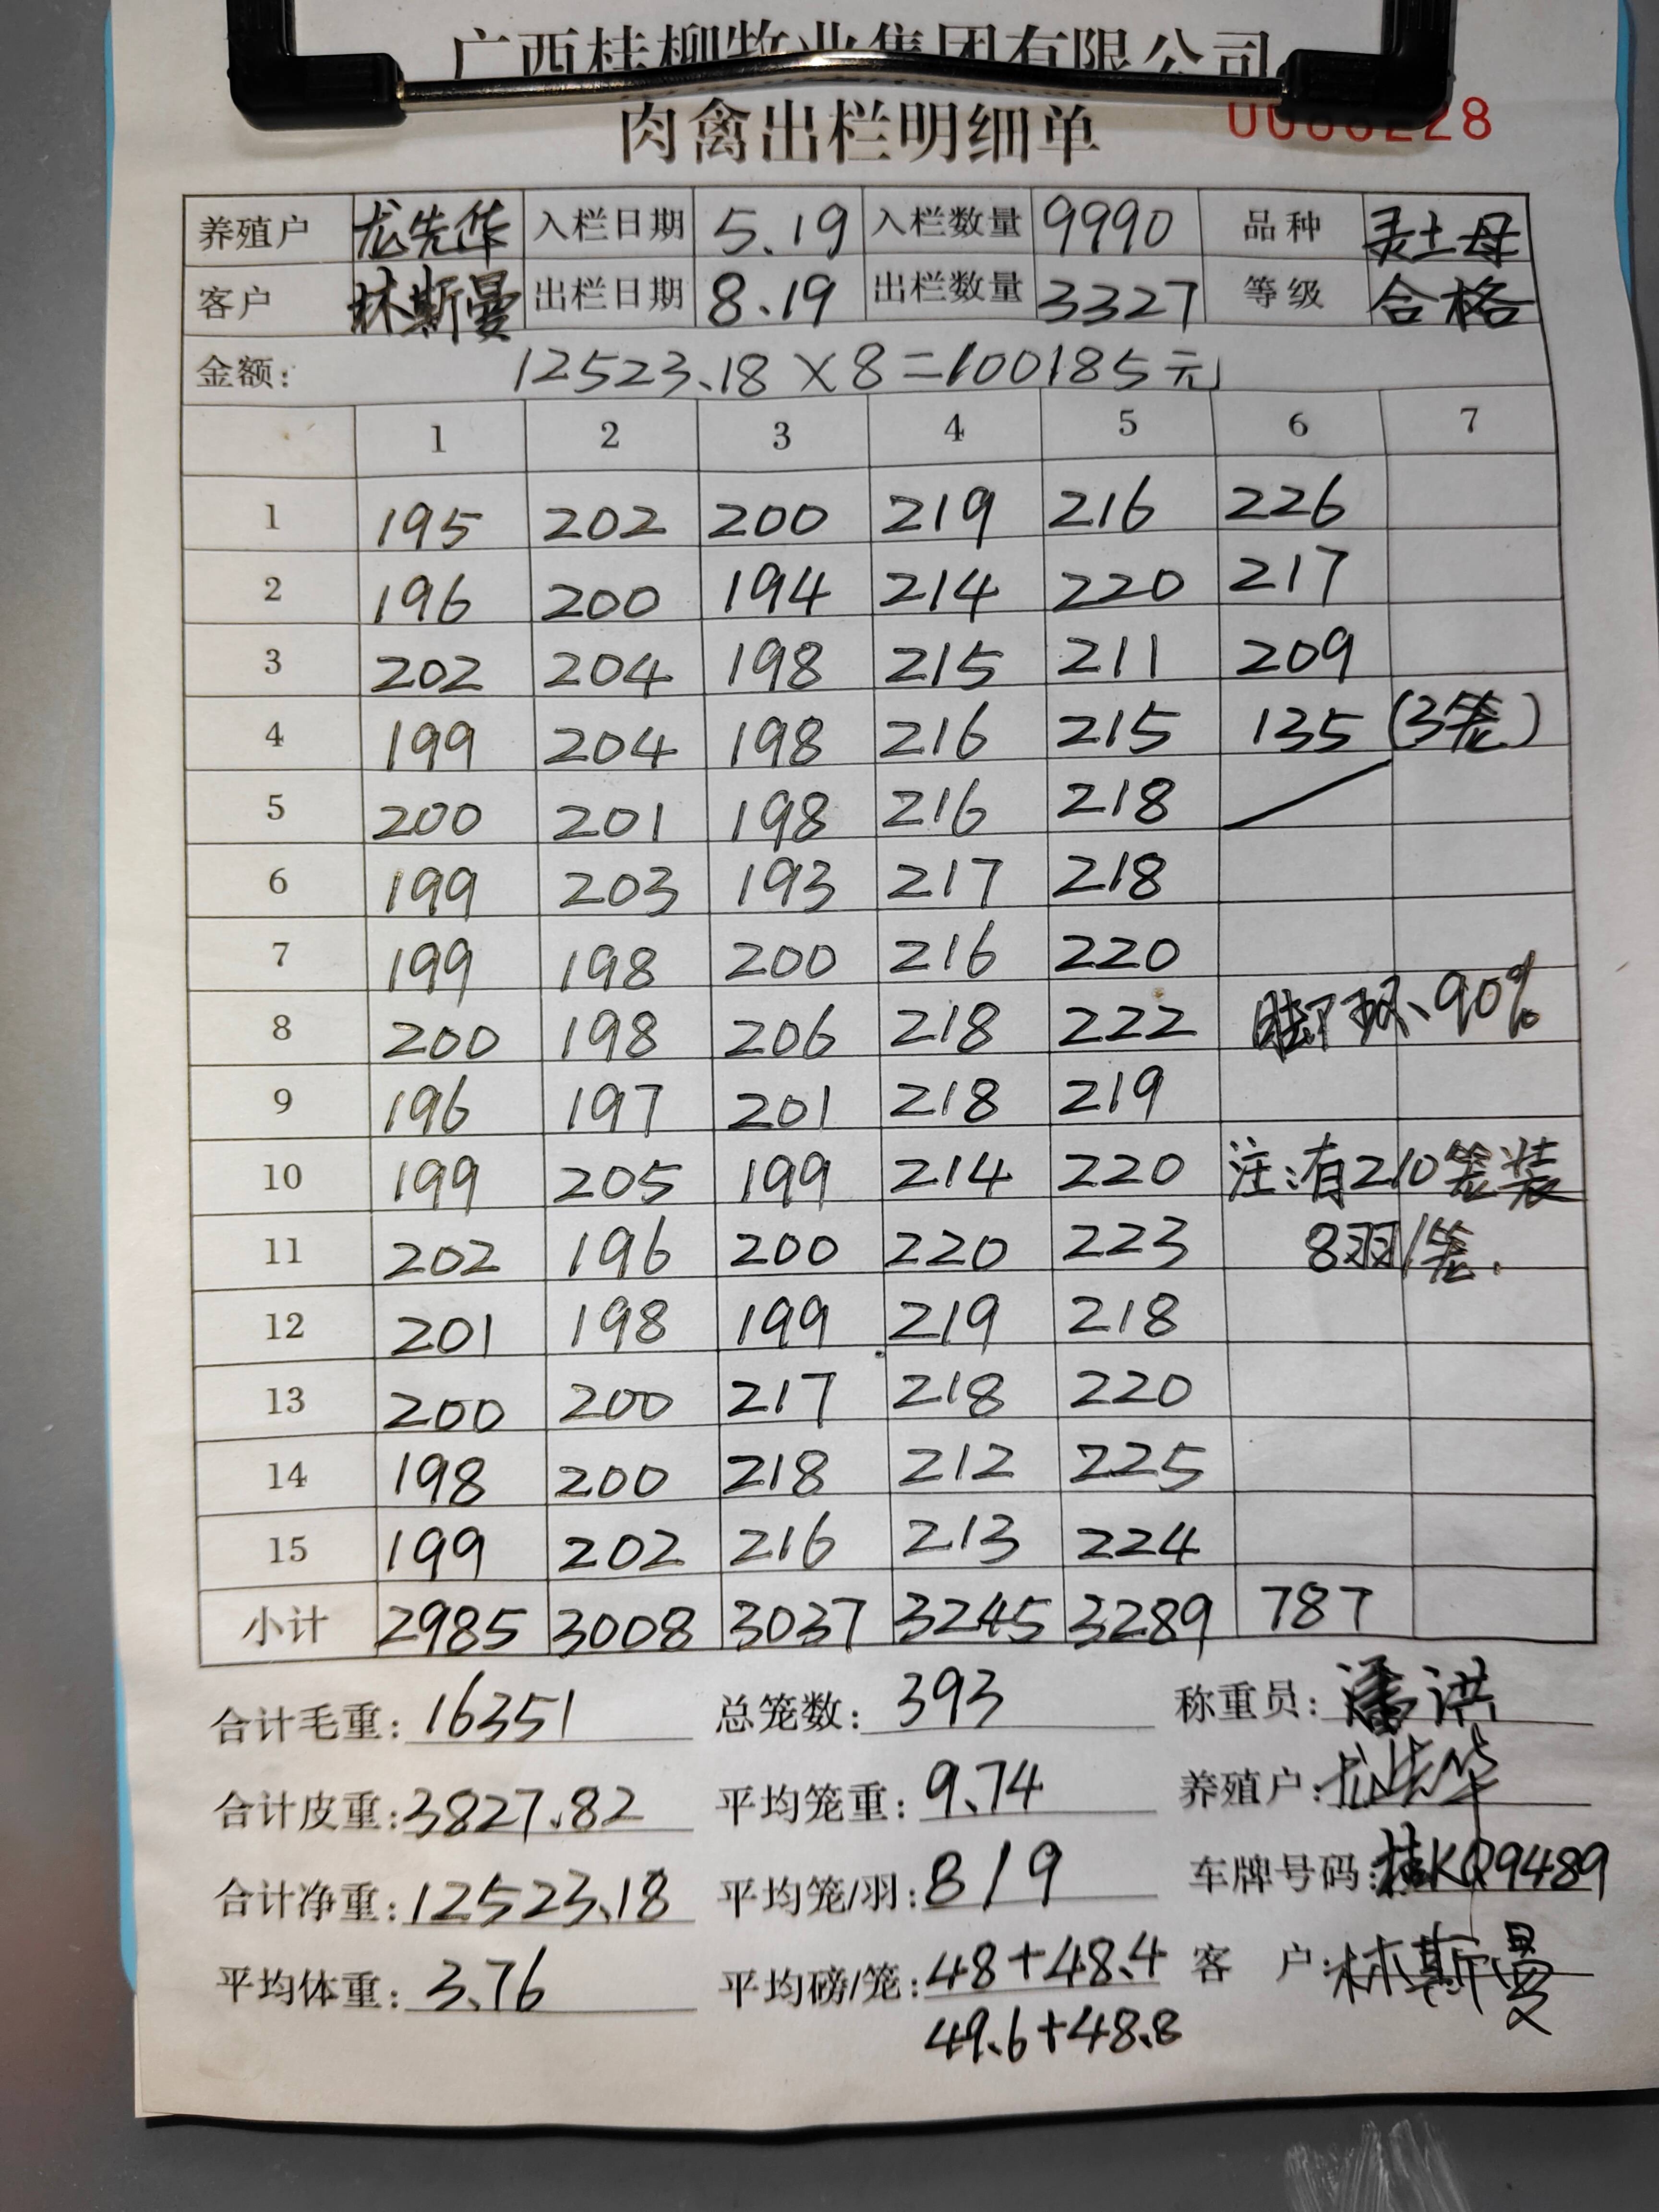 广西桂柳牧业集团有限公司
肉禽出栏明细单
养殖户 龙先华 入栏日期 5.19 入栏数量 9990 品种 灵土母
客户 林斯曼 出栏日期 8.19 出栏数量 3327 等级 合格
金额: 12523.18×8=100185元
1 2 3 4 5 6 7
1 195 202 200 219 216 226
2 196 200 194 214 220 217
3 202 204 198 215 211 209
4 199 204 198 216 215 135 (3笼)
5 200 201 198 216 218
6 199 203 193 217 218
7 199 198 200 216 220
8 200 198 206 218 222 脚环、90%
9 196 197 201 218 219
10 199 205 199 214 220 注:有210笼装
11 202 196 200 220 223 8羽/笼.
12 201 198 199 219 218
13 200 200 217 218 220
14 198 200 218 212 225
15 199 202 216 213 224
小计 2985 3008 3037 3245 3289 787
合计毛重: 16351 总笼数: 393 称重员: 潘洪
合计皮重: 3827.82 平均笼重: 9.74 养殖户: 龙先华
合计净重: 12523.18 平均笼/羽: 8/9 车牌号码: 桂KQ9489
平均体重: 3.76 平均磅/笼: 48+48.4 客户: 林斯曼
49.6+48.8